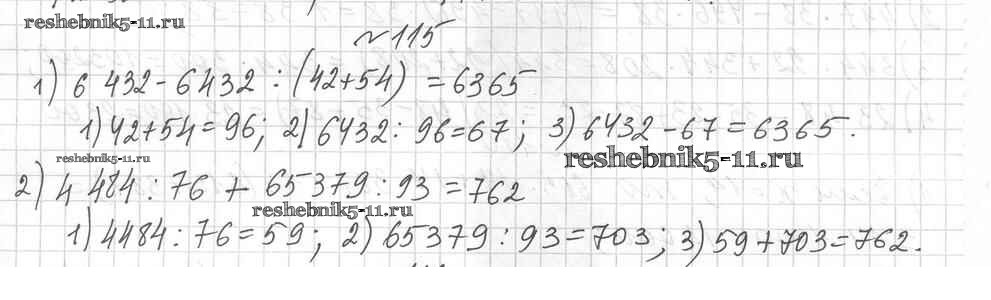 reshebnik5-11.ru
№115
1) 6 432 - 6432 : (42+54) = 6365
1) 42+54=96; 2) 6432 : 96=67; 3) 6432 - 67 = 6365.
reshebnik5-11.ru
reshebnik5-11.ru
2) 4 484 : 76 + 65379 : 93 = 762
reshebnik5-11.ru
1) 4484 : 76 = 59; 2) 65379 : 93 = 703; 3) 59 + 703 = 762.